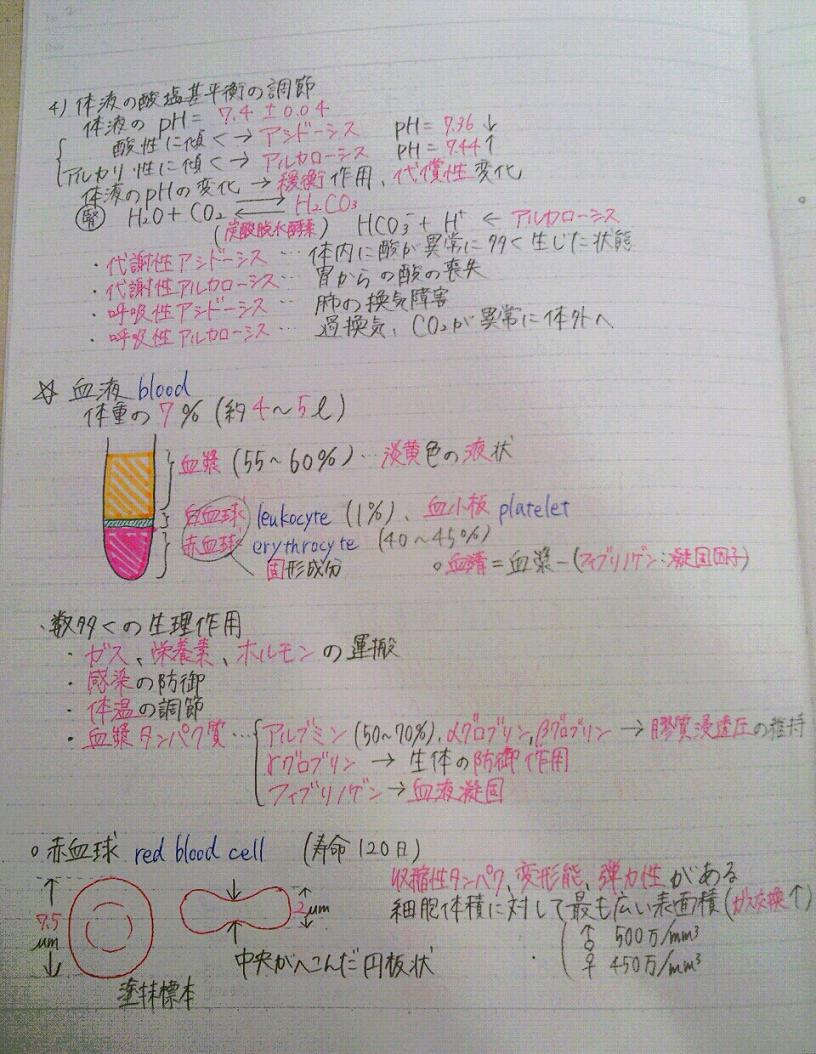 4) 体液の酸塩基平衡の調節
体液の pH = 7.4 ± 0.04
酸性に傾く → アシドーシス pH = 7.36 ↓
アルカリ性に傾く → アルカローシス pH = 7.44 ↑
体液のpHの変化 → 緩衝作用、代償性変化
腎 H₂O + CO₂ ⇄ H₂CO₃
(炭酸脱水酵素) HCO₃⁻ + H⁺ ← アルカローシス
・代謝性アシドーシス … 体内に酸が異常に多く生じた状態
・代謝性アルカローシス … 胃からの酸の喪失
・呼吸性アシドーシス … 肺の換気障害
・呼吸性アルカローシス … 過換気、CO₂が異常に体外へ
☆ 血液 blood
体重の 7 % (約 4~5 ℓ)
血漿 (55~60%) … 淡黄色の液状
白血球 leukocyte (1%)、血小板 platelet
赤血球 erythrocyte (40~45%)
固形成分 ○血清 = 血漿 − (フィブリノゲン:凝固因子)
・数多くの生理作用
・ガス、栄養素、ホルモンの運搬
・感染の防御
・体温の調節
・血漿タンパク質 … アルブミン (50~70%)、αグロブリン、βグロブリン → 膠質浸透圧の維持
γグロブリン → 生体の防御作用
フィブリノゲン → 血液凝固
○ 赤血球 red blood cell (寿命 120日)
収縮性タンパク、変形能、弾力性がある
7.5 μm
2 μm
細胞体積に対して最も広い表面積 (ガス交換↑)
♂ 500万/mm³
♀ 450万/mm³
中央がへこんだ円板状
塗抹標本